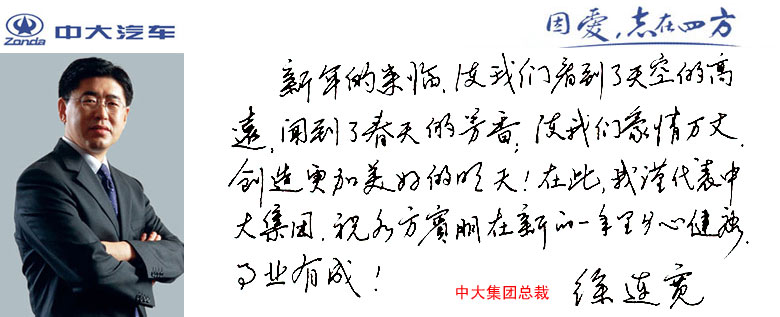 Zonda 中大汽车
因爱,志在四方
新年的来临,使我们看到了天空的高
远,闻到了春天的芳香,使我们豪情万丈,
创造更加美好的明天!在此,我谨代表中
大集团,祝各方宾朋在新的一年里身心健康,
事业有成!
中大集团总裁 徐连宽